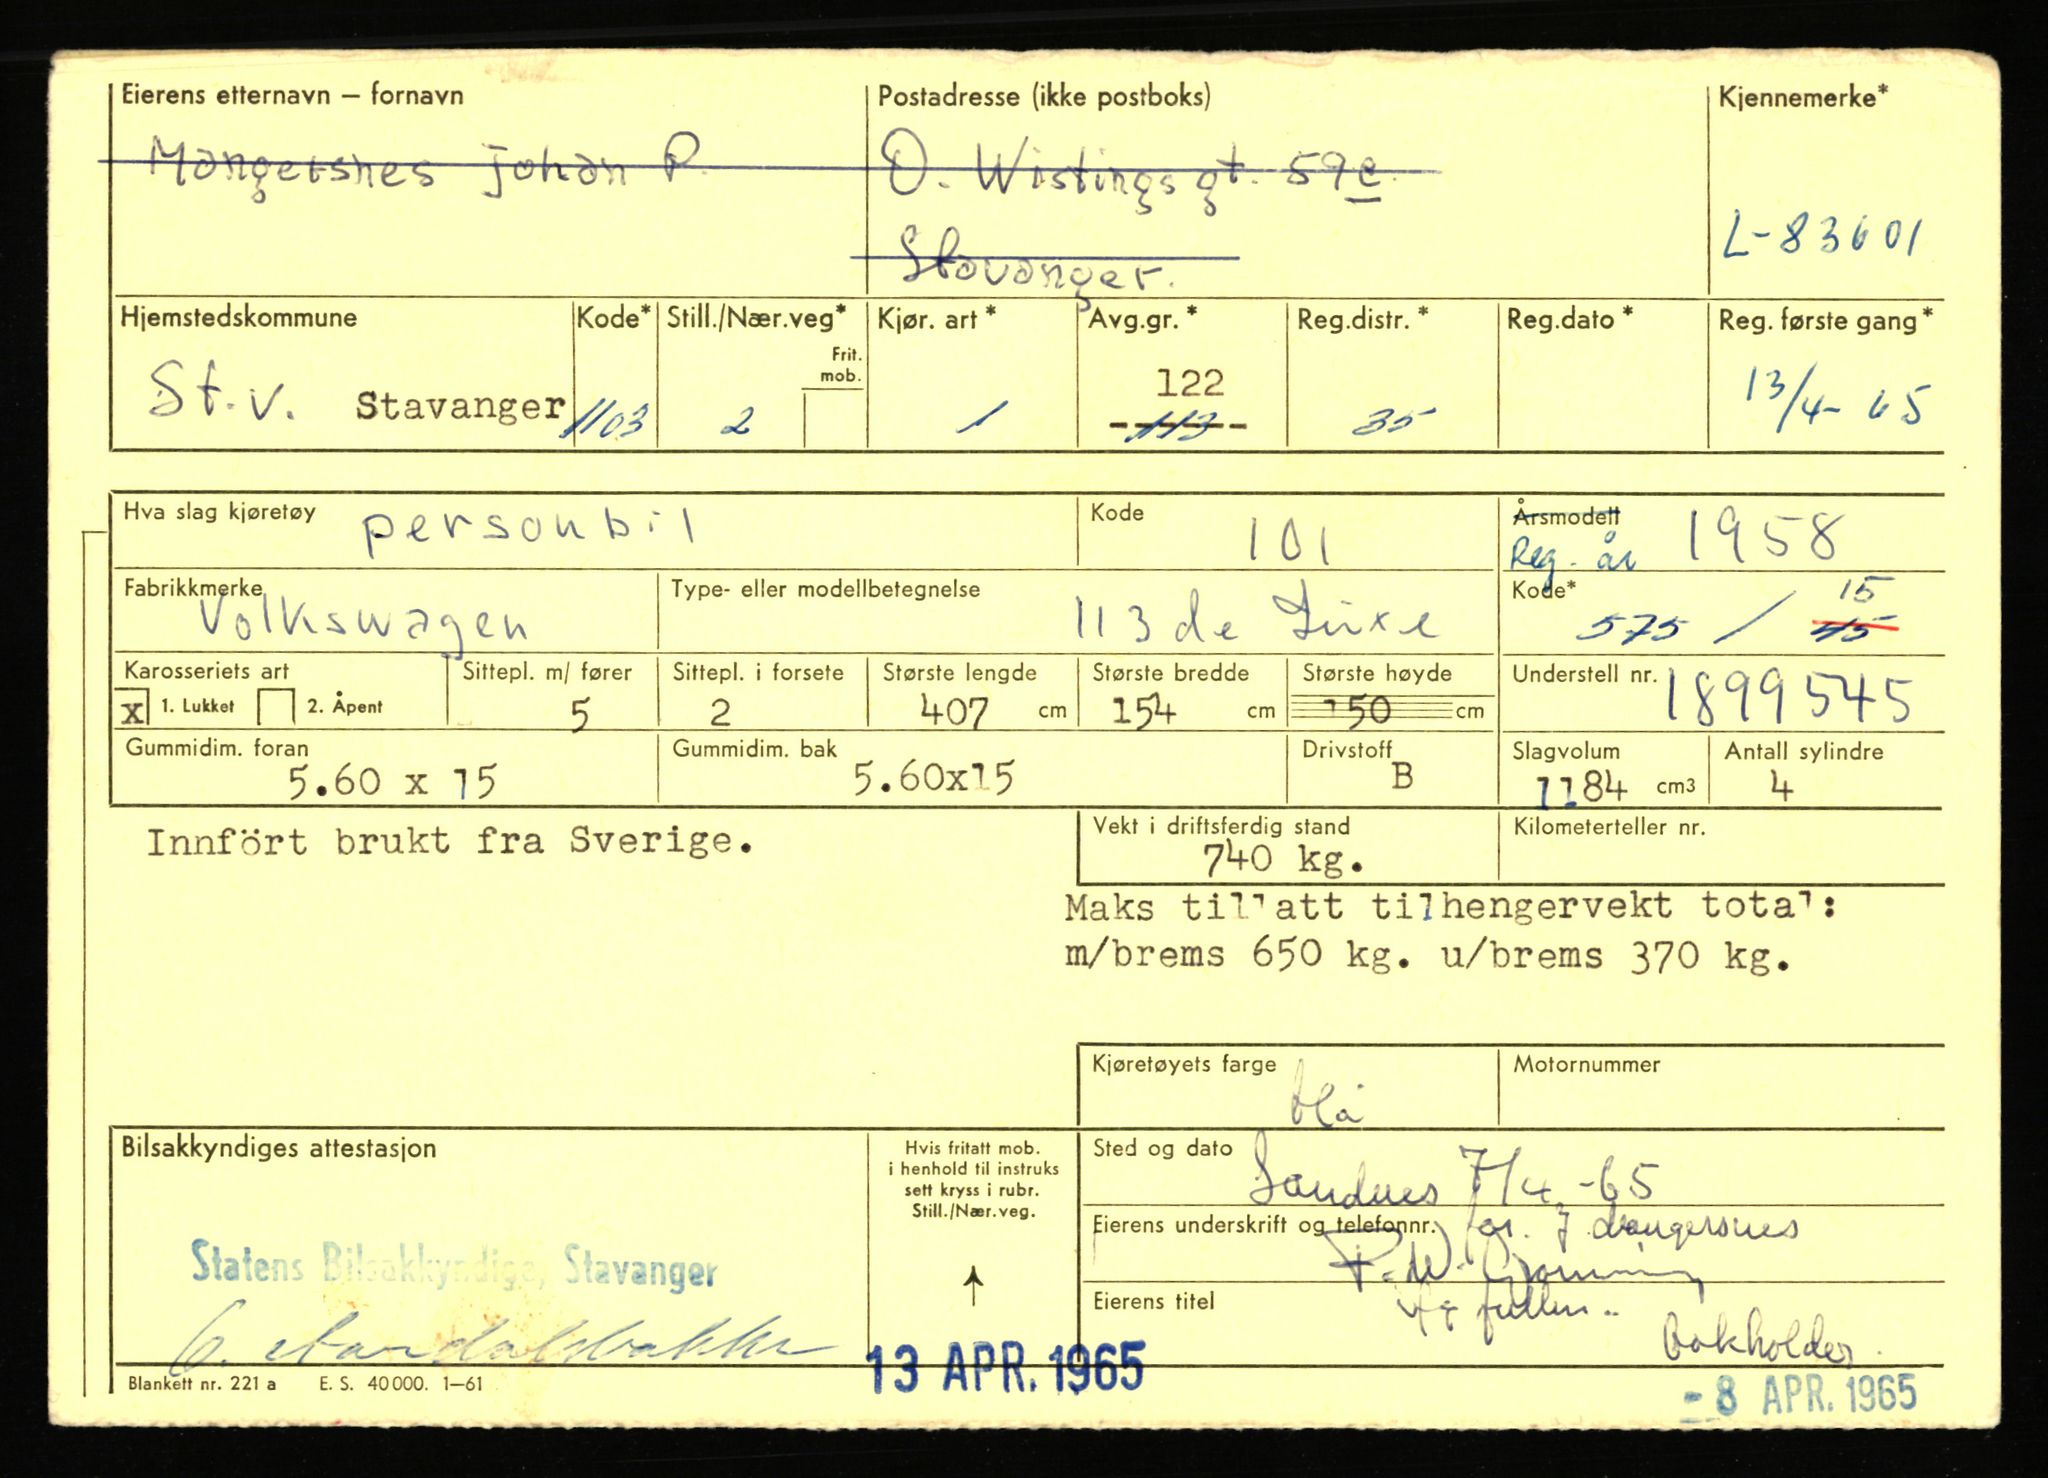 Eierens etternavn — fornavn
Postadresse (ikke postboks)
Kjennemerke*
Mangersnes Johan P.
O. Wistings gt. 59c.
Stavanger.
L-83601
Hjemstedskommune
Kode*
Still./Nær.veg*
Kjør. art*
Avg.gr.*
Reg.distr.*
Reg.dato*
Reg. første gang*
Frit.
mob.
St.v. Stavanger
1103
2
1
122
113
35
13/4-65
Hva slag kjøretøy
personbil
Kode
101
Årsmodell
Reg. år
1958
Fabrikkmerke
Volkswagen
Type- eller modellbetegnelse
113 de Luxe
Kode*
15
575 / 45
Karosseriets art
Sittepl. m/ fører
Sittepl. i forsete
Største lengde
Største bredde
Største høyde
Understell nr.
1899545
x 1. Lukket
2. Åpent
5
2
407 cm
154 cm
150 cm
Gummidim. foran
Gummidim. bak
Drivstoff
Slagvolum
Antall sylindre
5.60 x 15
5.60x15
B
1184 cm3
4
Innfört brukt fra Sverige.
Vekt i driftsferdig stand
740 kg.
Kilometerteller nr.
Maks tillatt tilhengervekt total:
m/brems 650 kg. u/brems 370 kg.
Kjøretøyets farge
blå
Motornummer
Bilsakkyndiges attestasjon
Hvis fritatt mob.
i henhold til instruks
sett kryss i rubr.
Still./Nær.veg.
Sted og dato
Sandnes 7/4-65
Eierens underskrift og telefonnr.
for J Mangersnes
Statens Bilsakkyndige, Stavanger
Eierens titel
bokholder.
13 APR. 1965
Blankett nr. 221 a E. S. 40000. 1—61
- 8 APR. 1965